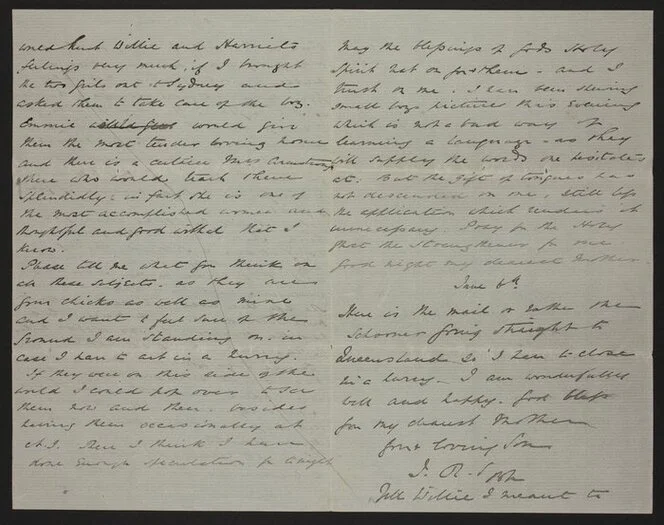 hurt Willie and Harriets
feelings very much, if I brought
the two girls out to Sydney and
asked them to take care of the boy.
Emmie would give
them the most tender loving home
and there is a certain Miss Armstrong
there who would teach them
splendidly. in fact she is one of
the most accomplished women and
thoughtful and good withal that I
know.
Please tell me what you think on
all these subjects. as they are
your chicks as well as mine
and I want to feel sure of the
ground I am standing on. in
case I have to act in a hurry.
If they were on this side of the
world I could pop over to see
them now and then besides
having them occasionally at
Here I think I have
done enough speculation for a night
May the blessings of Gods Holy
Spirit rest on you & them - and I
trust on me. I have been shewing
small boys picture this evening
which is not a bad way of
learning a language - as they
will supply the words one hesitates
at. But the gift of tongues has
not descended on me, still less
the application which renders it
unnecessary. Pray for the Holy
Ghost the Strengthener for me
good night my dearest Mother.
June 6th
Here is the mail or rather the
schooner going straight to
Queensland so I have to close
in a hurry - I am wonderfully
well and happy. God bless
you my dearest Mother
Your loving Son
J. R. S
Tell Willie I meant to